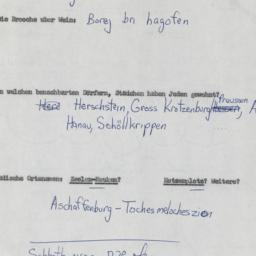 die Broche über Wein: Borej bn hagofen
n welchen benachbarten Dörfern, Städtchen haben Juden gewohnt?
Preussen
Herschstein, Gross Krotzenburg, A
Hanau, Schöllkrippen
dische Ortsnamen: Seelen-Haufen? Hutzenplotz? Weitere?
Aschaffenburg - Toches melocheszion